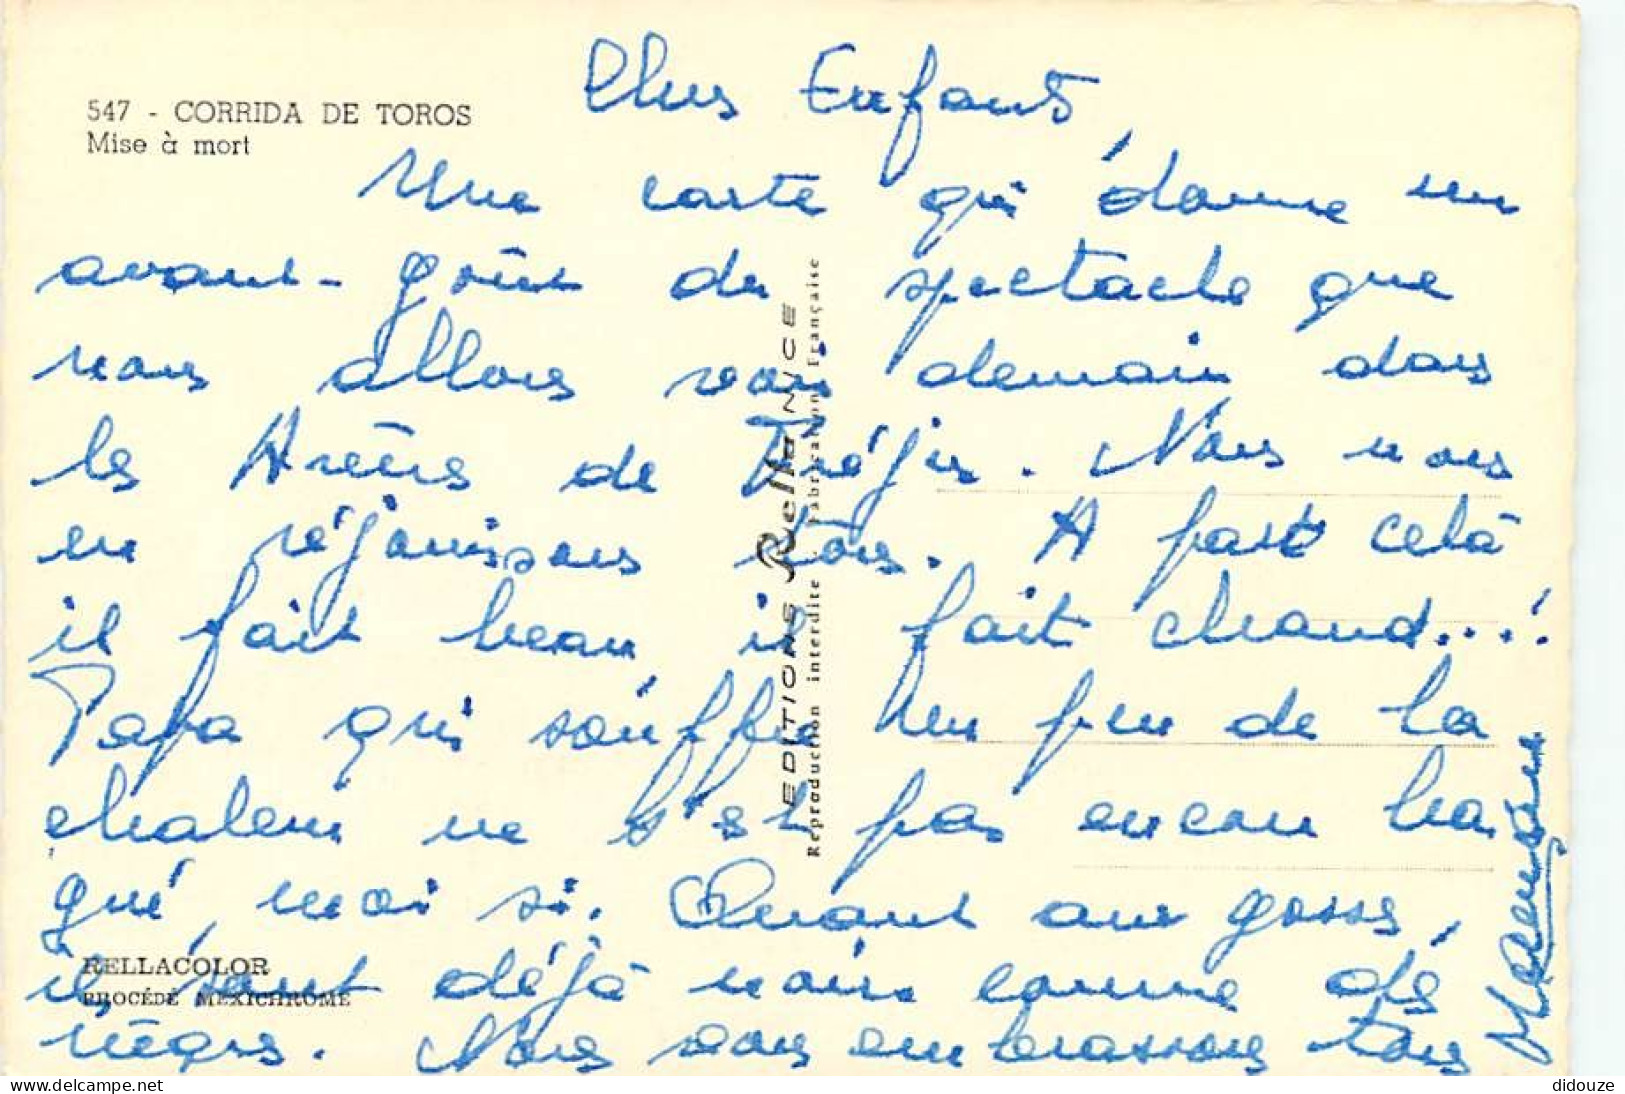 547 - CORRIDA DE TOROS
Mise à mort
Chers Enfants,
Une carte qui donne un
avant-goût du spectacle que
nous allons voir demain dans
les Arènes de Fréjus. Nous nous
en réjouissons tous. A part celà
il fait beau, il fait chaud...!
Papa qui souffre un peu de la
chaleur ne s'est pas encore ba
gné, moi si. Quant aux gosses,
ils sont déjà noirs comme des
nègres. Nous vous embrassons tous
EDITIONS Rella NICE
Reproduction interdite - Fabrication Française
RELLACOLOR
PROCÉDÉ MEXICHROME
delcampe.net
didouze